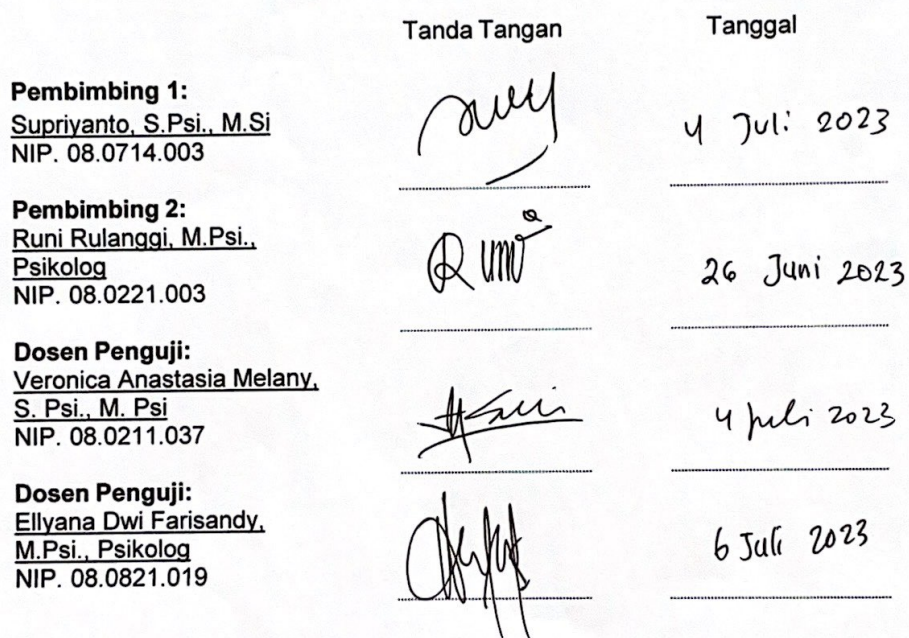 Tanda Tangan Tanggal
Pembimbing 1:
Supriyanto, S.Psi., M.Si
NIP. 08.0714.003
4 Juli 2023
Pembimbing 2:
Runi Rulanggi, M.Psi.,
Psikolog
NIP. 08.0221.003
26 Juni 2023
Dosen Penguji:
Veronica Anastasia Melany,
S. Psi., M. Psi
NIP. 08.0211.037
4 Juli 2023
Dosen Penguji:
Ellyana Dwi Farisandy,
M.Psi., Psikolog
NIP. 08.0821.019
6 Juli 2023